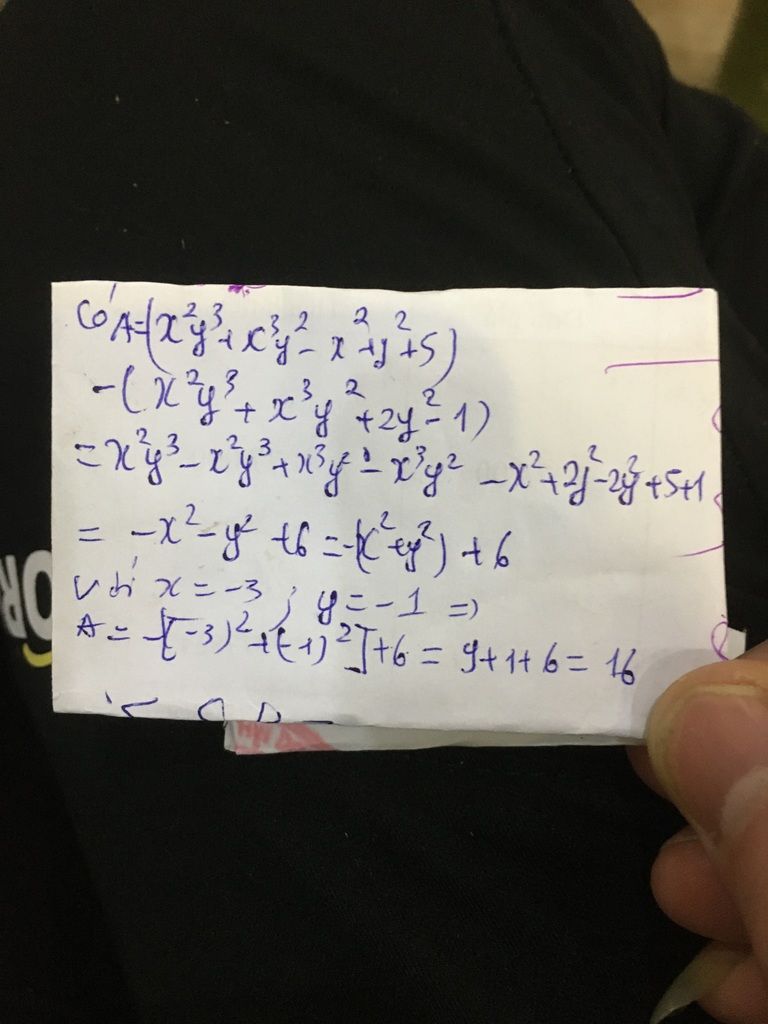 Có A=(x²y³+x³y²-x²+y²+5)
-(x²y³+x³y²+2y²-1)
=x²y³-x²y³+x³y²-x³y²-x²+2y²-2y²+5+1
= -x²-y²+6=-(x²+y²)+6
Với x=-3; y=-1 =>
A=-[(-3)²+(-1)²]+6=9+1+6=16
OR